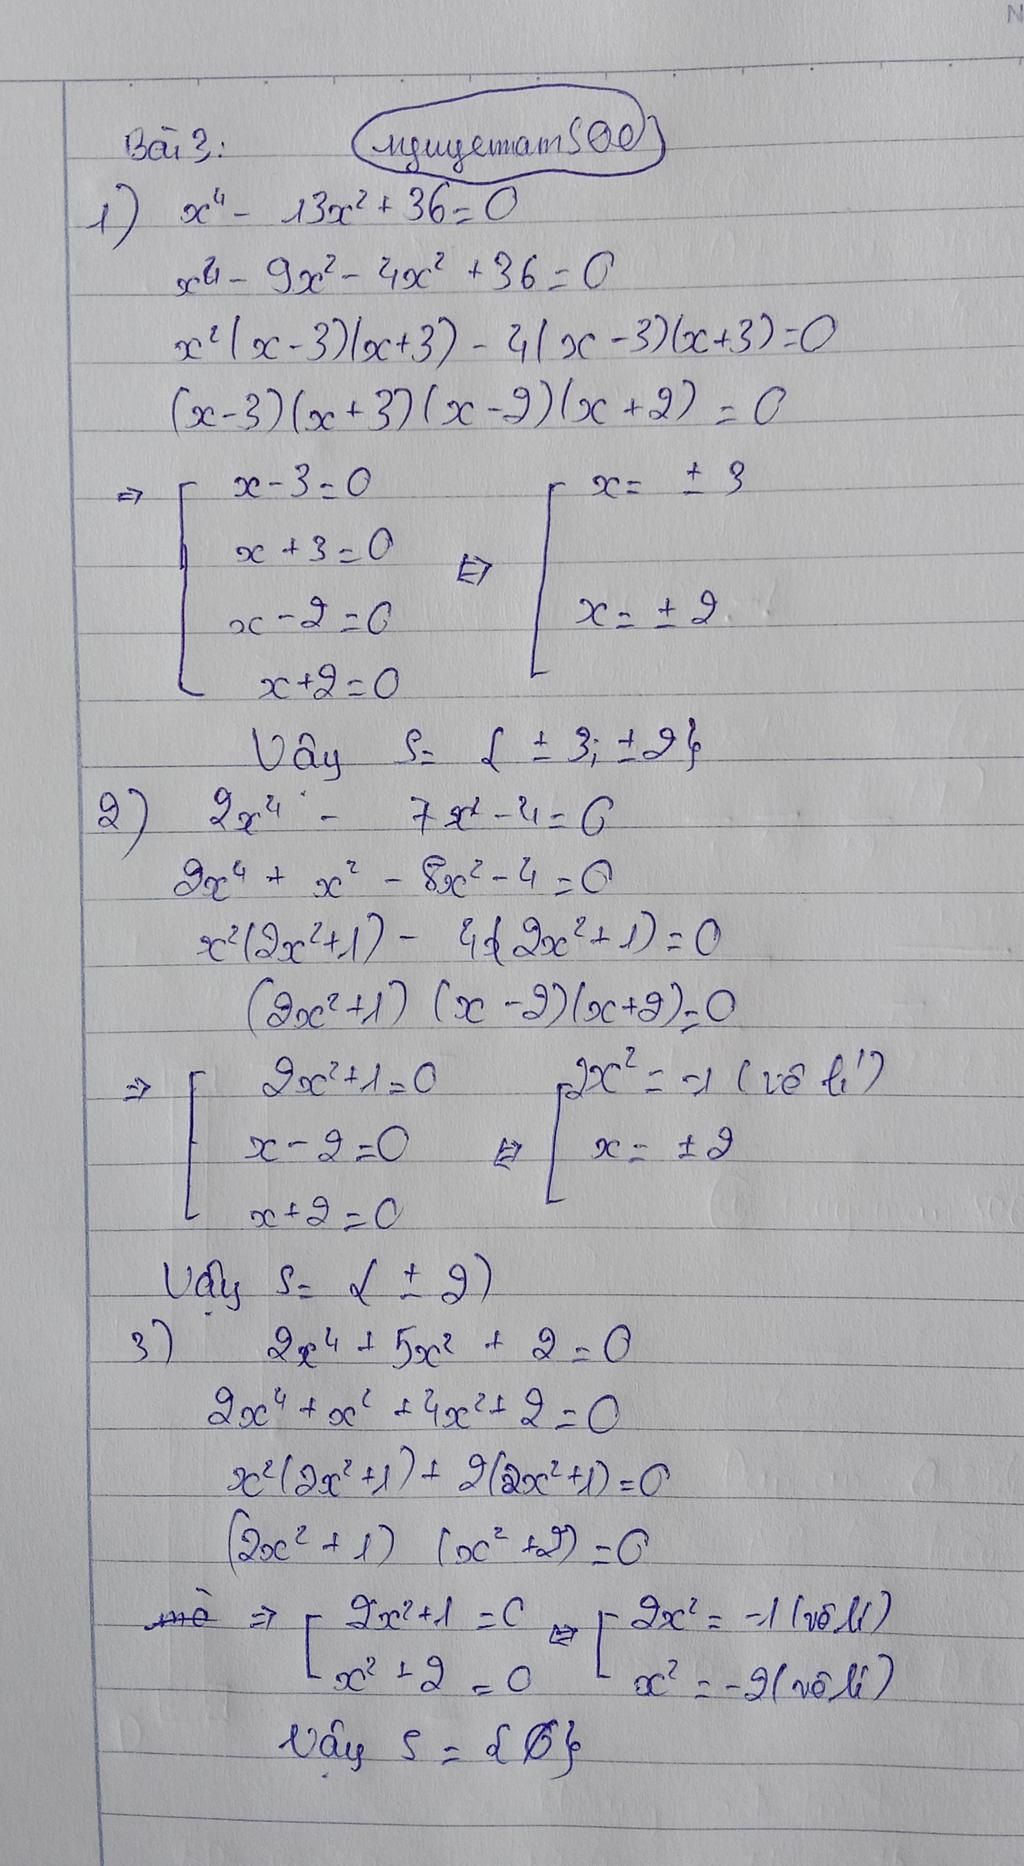 N
Bài 3: nguyetnam500
1) x⁴ - 13x² + 36 = 0
x⁴ - 9x² - 4x² + 36 = 0
x²(x-3)(x+3) - 4(x-3)(x+3) = 0
(x-3)(x+3)(x-2)(x+2) = 0
⇒ [ x-3=0 [ x = ± 3
x+3=0 ⇔
x-2=0 x = ± 2
x+2=0
Vây S = { ± 3; ± 2}
2) 2x⁴ - 7x² - 4 = 0
2x⁴ + x² - 8x² - 4 = 0
x²(2x²+1) - 4(2x²+1) = 0
(2x²+1) (x-2)(x+2) = 0
⇒ [ 2x²+1=0 [ 2x² = -1 (vô lí)
x-2=0 ⇔ x = ± 2
x+2=0
Vậy S = { ± 2)
3) 2x⁴ + 5x² + 2 = 0
2x⁴ + x² + 4x² + 2 = 0
x²(2x²+1) + 2(2x²+1) = 0
(2x²+1) (x²+2) = 0
mà ⇒ [ 2x²+1 = 0 ⇔ [ 2x² = -1 (vô lí)
x² + 2 = 0 x² = -2 (vô lí)
Vây S = {∅}